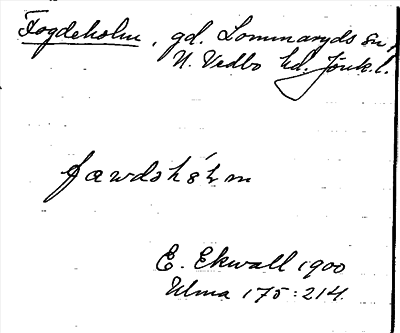 Fogdeholm, gd. Lommaryds sn,
N. Vedbo hd. Jönk. l.
E. Ekwall 1900
Ulma 175:214.